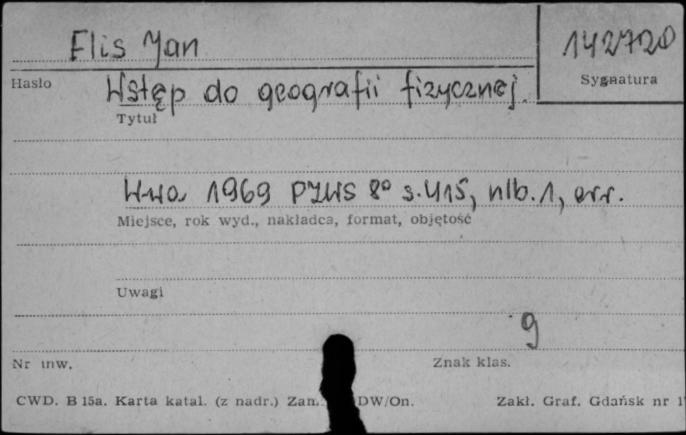 Flis Jan
142720
Hasło
Sygnatura
Wstęp do geografii fizycznej.
Tytuł
W-wa 1969 PZWS 8° s. 415, nlb. 1, err.
Miejsce, rok wyd., nakładca, format, objętość
Uwagi
g
Nr inw.
Znak klas.
CWD. B 15a. Karta katal. (z nadr.) Zam. DW/On.
Zakł. Graf. Gdańsk nr